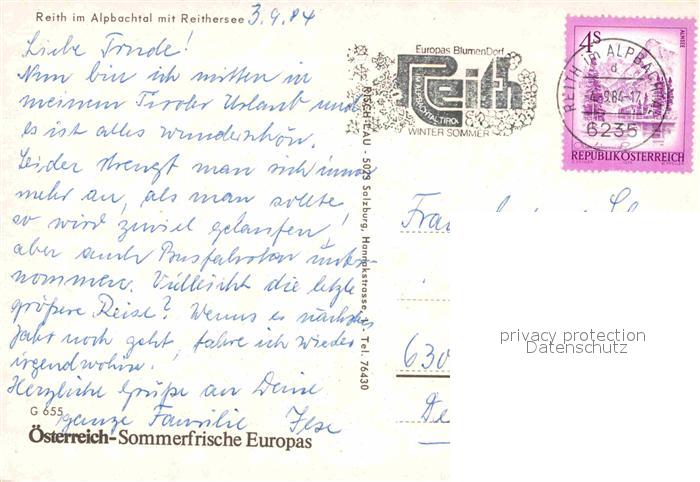 Reith im Alpbachtal mit Reithersee 3.9.84
Liebe Trude!
Nun bin ich mitten in
meinem Tiroler Urlaub und
es ist alles wunderschön.
Leider strengt man sich immer
mehr an, als man sollte
so wird zuviel gelaufen!
aber auch Busfahrten unter-
nommen. Vielleicht die letzte
größere Reise? Wenns es nächstes
Jahr noch geht, fahre ich wieder
irgendwohin.
Herzliche Grüße an Deine
ganze Familie Ilse
G 655
Österreich-Sommerfrische Europas
RISCH-LAU - 5023 Salzburg, Tel. 76430
Europas BlumenDorf
Reith
ALPBACHTAL/TIROL
WINTER SOMMER
REITH im ALPBACHTAL
a
6235
4S
ALMSEE
REPUBLIK ÖSTERREICH
630
privacy protection
Datenschutz